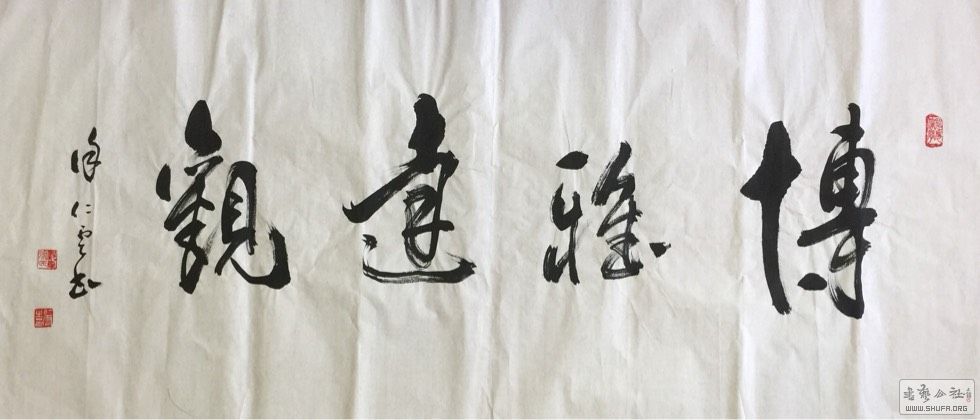 博雅達觀
徐仁雲書
书艺公社
WWW.SHUFA.ORG